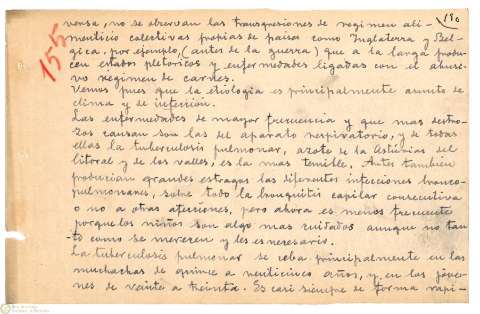 190
155
versa, no se observan las transgresiones de regimen ali-
menticio colectivas propias de paises como Inglaterra y Bél-
gica, por ejemplo, (antes de la guerra) que a la larga produ-
cen estados pletóricos y enfermedades ligadas con el abusi-
vo regimen de carnes.
Vemos pues que la etiologia es principalmente asunto de
clima y de infección.
Las enfermedades de mayor frecuencia y que mas destro-
zos causan son las del aparato respiratorio, y de todas
ellas la tuberculosis pulmonar, azote de la Asturias del
litoral y de los valles, es la mas temible. Antes tambien
producian grandes estragos las diferentes infecciones bronco-
pulmonares, sobre todo la bronquitis capilar consecutiva
o no a otras afecciones, pero ahora es menos frecuente
porque los niños son algo mas cuidados aunque no tan-
to como se merecen y les es necesario.
La tuberculosis pulmonar se ceba principalmente en las
muchachas de quince a veinticinco años, y en los jóve-
nes de veinte a treinta. Es casi siempre de forma rapi-